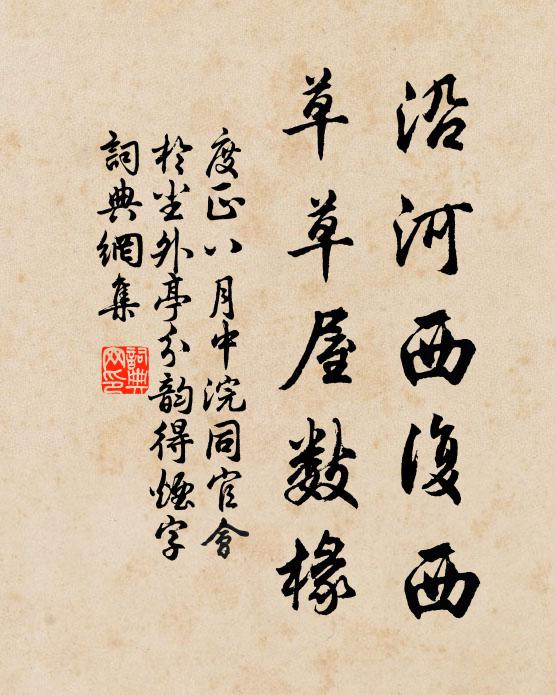 沿河西復西
草草屋數椽
度正八月中浣同官會
於坐外亭分韵得煙字
詞典網集
詞典网印